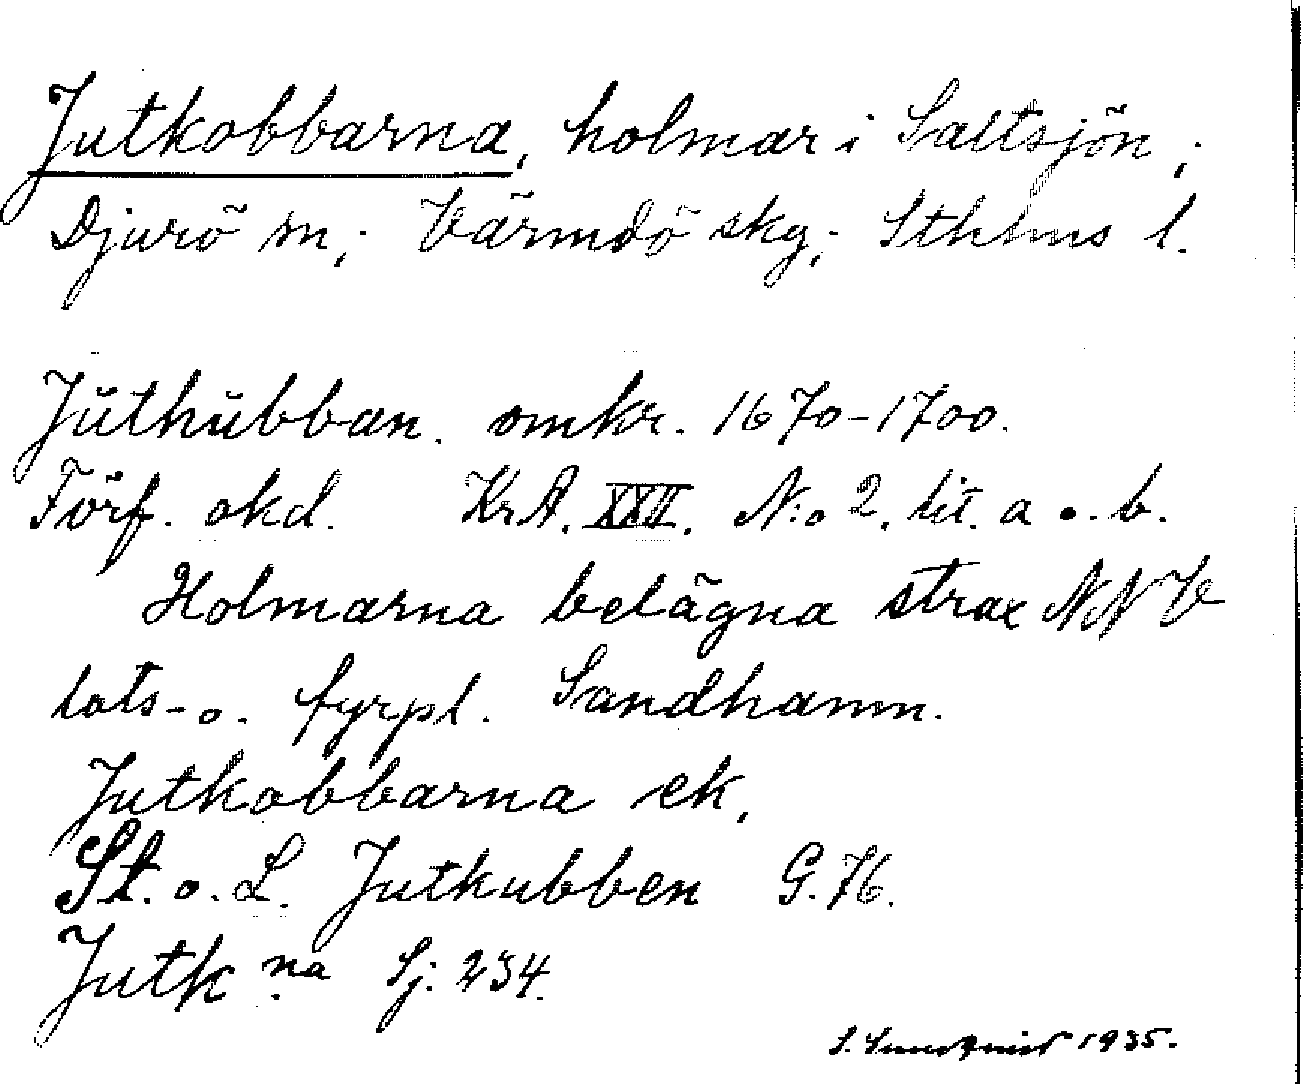 Jutkobbarna, holmar i Saltsjön;
Djurö sn; Värmdö skg; Sthlms l.
Jŭthŭbban. omkr. 1670-1700.
Förf. okd. KrA. XXII. N:o 2. lit. a o. b.
Holmarna belägna strax NNV
lots- o. fyrpl. Sandhamn.
Jutkobbarna ek,
St. o. L. Jutkubben G. 76.
Jutk na Sj: 234.
S. 1935.